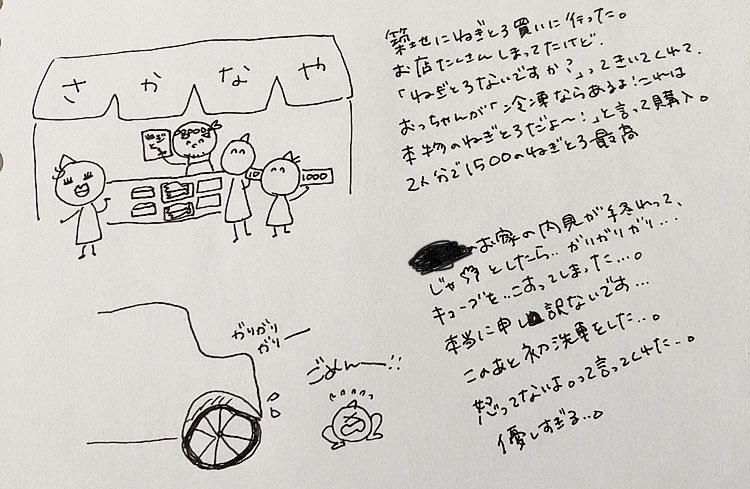 さかなや
ねぎとろ
10
1000
築地にねぎとろ買いに行った。
お店たくさんしまってたけど、
「ねぎとろないですか?」ってきいてくれて、
おっちゃんが「冷凍ならあるよ!これは
本物のねぎとろだよ〜!」と言って購入。
2人分で1500のねぎとろ最高
お家の内見が終わって、
じゃ、としたら‥ガリガリガリ‥
キューブを‥こすってしまった…。
本当に申し訳ないです…
このあと初洗車をした…。
怒ってないよ。って言ってくれた…。
優しすぎる…。
ガリガリ
ガリー
ごめんー!!